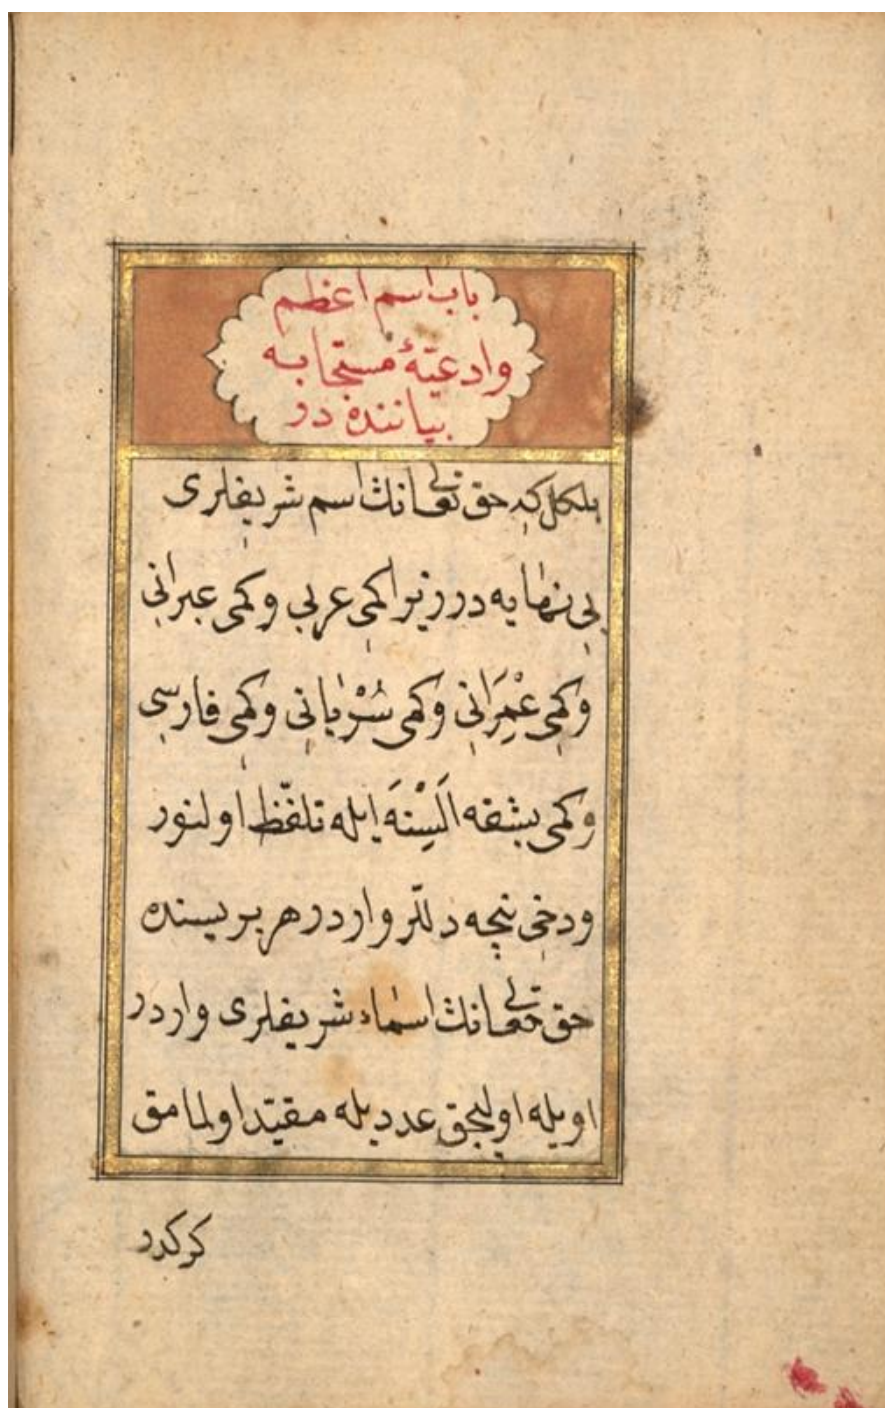 باب اسم اعظم
وادعیۀ مستجابه
بیاننده در
بلکل که حق تعالی‌نك اسم شریفلری
بی نهایه در زیرا کمی عربی وکمی عبرانی
وکمی عِمْرَانی وکمی سُرْیانی وکمی فارسی
وکمی بشقه اَلْسِنَه ایله تلفّظ اولنور
ودخی نیچه دللّر واردر هر بریسنده
حق تعالی‌نك اسماء شریفلری واردر
اویله اولیجق عددیله مقیّد اولمامق
کرکدر